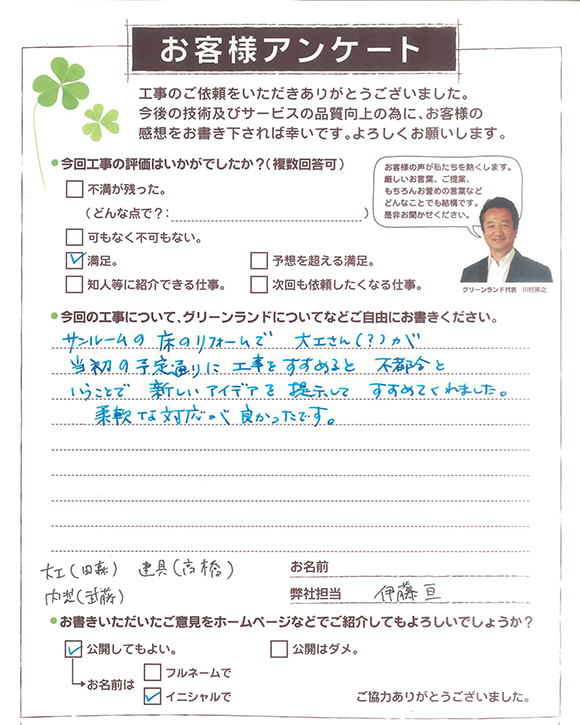 お客様アンケート
工事のご依頼をいただきありがとうございました。
今後の技術及びサービスの品質向上の為に、お客様の
感想をお書き下されば幸いです。よろしくお願いします。
●今回工事の評価はいかがでしたか?(複数回答可)
不満が残った。
(どんな点で?: )
可もなく不可もない。
満足。
予想を超える満足。
知人等に紹介できる仕事。
次回も依頼したくなる仕事。
お客様の声が私たちを熱くします。
厳しいお言葉、ご提案、
もちろんお誉めの言葉など
どんなことでも結構です。
是非お聞かせください。
グリーンランド代表 川村英之
●今回の工事について、グリーンランドについてなどご自由にお書きください。
サンルームの床のリフォームで 大工さん(?)が
当初の予定通りに工事をすすめると 不都合と
いうことで 新しいアイデアを提示して すすめてくれました。
柔軟な対応が良かったです。
大工(田森) 建具(高橋)
内装(武藤)
お名前
弊社担当 伊藤 亘
●お書きいただいたご意見をホームページなどでご紹介してもよろしいでしょうか?
公開してもよい。
公開はダメ。
お名前は
フルネームで
イニシャルで
ご協力ありがとうございました。